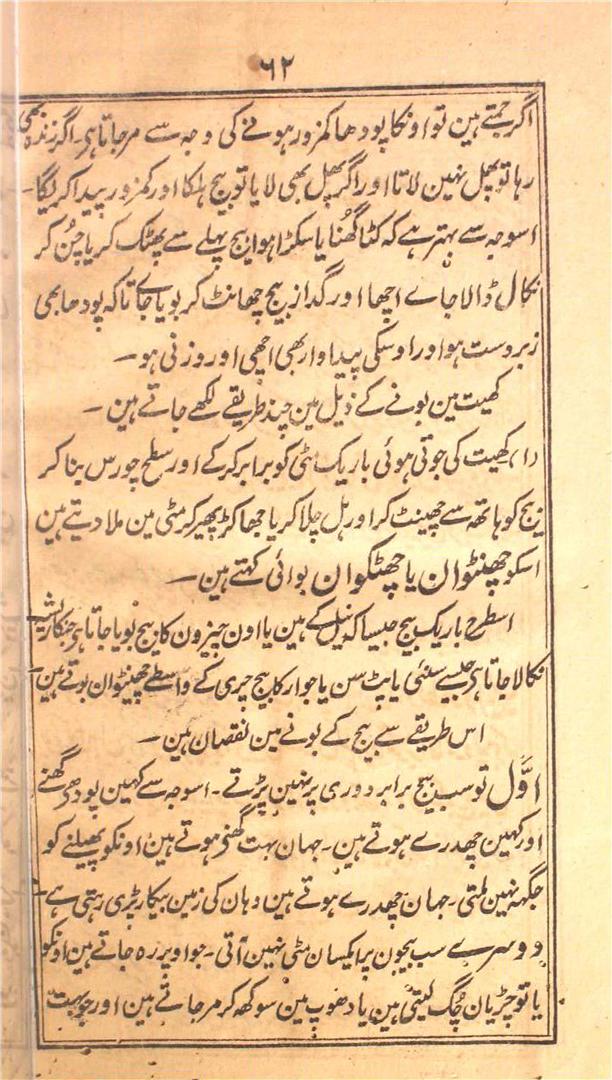 ۶۲
اگر جمتے ہین تو اونکا پودھا کمزور ہونے کی وجہ سے مرجاتا ہی۔ اگر زندہ بھی
رہا تو پھل نہین لاتا اور اگر پھل بھی لایا تو بیج ہلکا اور کمزور پیدا کریگا۔
اسوجہ سے بہتر ہے کہ کٹا گھُنا یا سکڑا ہوا بیج پہلے سے پھٹک کر یا چُن کر
نکال ڈالا جاے اچھا اور گداز بیج چھانٹ کر بویا جاے تاکہ پودھا بھی
زبردست ہو اور اوسکی پیداوار بھی اچھی اور وزنی ہو۔
کھیت مین بونے کے ذیل مین چند طریقے لکھے جاتے ہین۔
(۱) کھیت کی جوتی ہوئی باریک مٹی کو برابر کرکے اور سطح چورس بنا کر
بیج کو ہاتھ سے چھینٹ کر اور ہل چلا کر یا جھاکڑ پھیر کر مٹی مین ملا دیتے ہین
اسکو چھنٹوان یا چھٹکوان بوائی کہتے ہین۔
اسطرح باریک بیج جیسا کہ نیل کے ہین یا اون چیزون کا بیج بویا جاتا ہی جنکا ریشہ
نکالا جاتا ہی جیسے سنئی یا پٹ سن یا جوار کا بیج چری کے واسطے چھنٹوان بوتے ہین۔
اس طریقے سے بیج کے بونے مین نقصان ہین۔
اوّل تو سب بیج برابر دوری پر نہین پڑتے۔ اسوجہ سے کہین پودھے گھنے
اور کہین چھدرے ہوتے ہین۔ جہان بہت گھنے ہوتے ہین اونکو پھیلنے کو
جگہہ نہین ملتی۔ جہان چھدرے ہوتے ہین وہان کی زمین بیکار پڑی رہتی ہے۔
دوسرے سب بیجون پر ایکسان مٹی نہین آتی۔ جو اوپر رہ جاتے ہین اونکو
یا تو چڑیان چُگ لیتی ہین یا دھوپ مین سوکھ کر مرجاتے ہین اور جو بہت